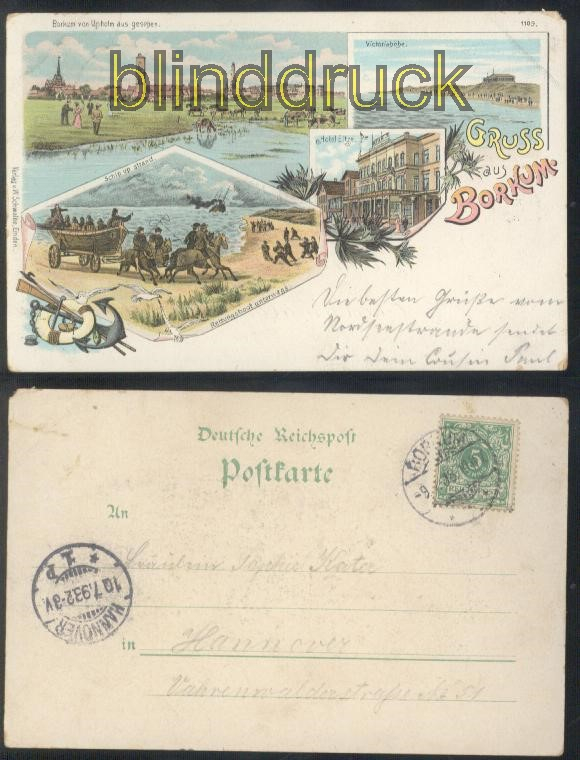 Borkum von Upholm aus gesehen.
1109.
blinddruck
Victoriahöhe.
Hotel Eltze.
GRUSS
aus
BORKUM.
Schip up strand.
Rettungsboot unterwegs.
Verlag v. W. Schwalbe, Emden.
Die besten Grüße vom
Nordseestrande sendet
Dir Dein Cousin Paul
Deutsche Reichspost
Postkarte
An
BORKUM
5
Fräulein Sophie Kater
in Hannover
Vahrenwalderstraße No 51
HANNOVER
10.7.93.2-3V.
* 1 P *